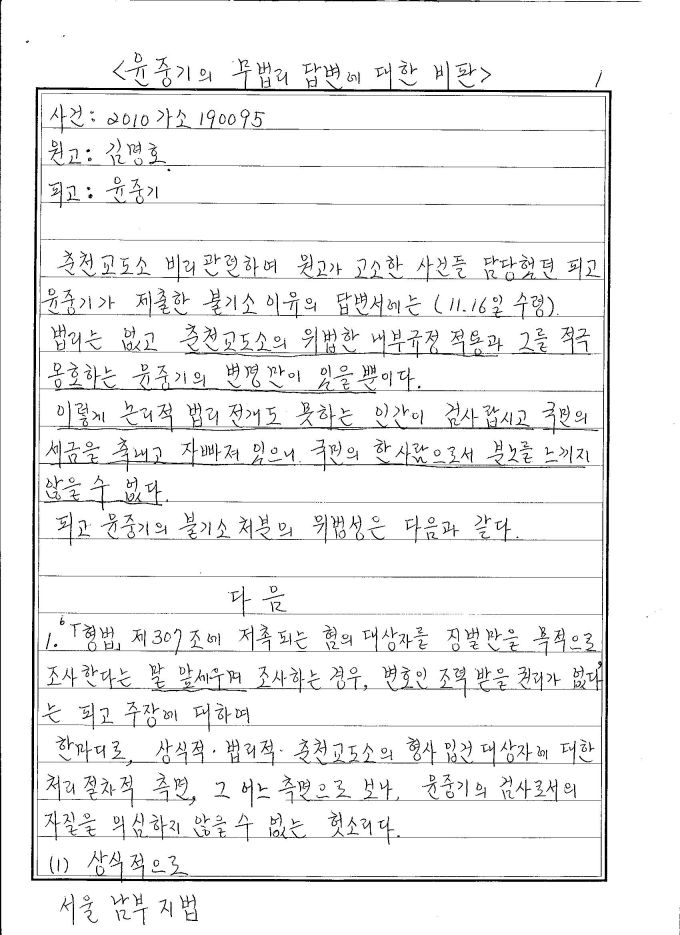 <윤중기의 무법리 답변에 대한 비판> 1
사건: 2010 가소 190095
원고: 김명호.
피고: 윤중기
춘천교도소 비리 관련하여 원고가 고소한 사건들 담당했던 피고
윤중기가 제출한 불기소 이유의 답변서에는 (11.16일 수령).
법리는 없고 춘천교도소의 위법한 내부규정 적용과 그를 적극
옹호하는 윤중기의 변명만이 있을 뿐이다.
이렇게 논리적 법리 전개도 못하는 인간이 검사랍시고 국민의
세금을 축내고 자빠져 있으니 국민의 한 사람으로서 분노를 느끼지
않을 수 없다.
피고 윤중기의 불기소 처분의 위법성은 다음과 같다.
다 음
1. ‘「형법」 제307조에 저촉되는 혐의 대상자를 징벌만을 목적으로
조사한다는 말 앞세우며 조사하는 경우, 변호인 조력 받을 권리가 없다’
는 피고 주장에 대하여
한마디로, 상식적·법리적·춘천교도소의 형사 입건 대상자에 대한
처리 절차적 측면, 그 어느 측면으로 보나, 윤중기의 검사로서의
자질을 의심하지 않을 수 없는 헛소리다.
(1) 상식적으로
서울 남부 지법